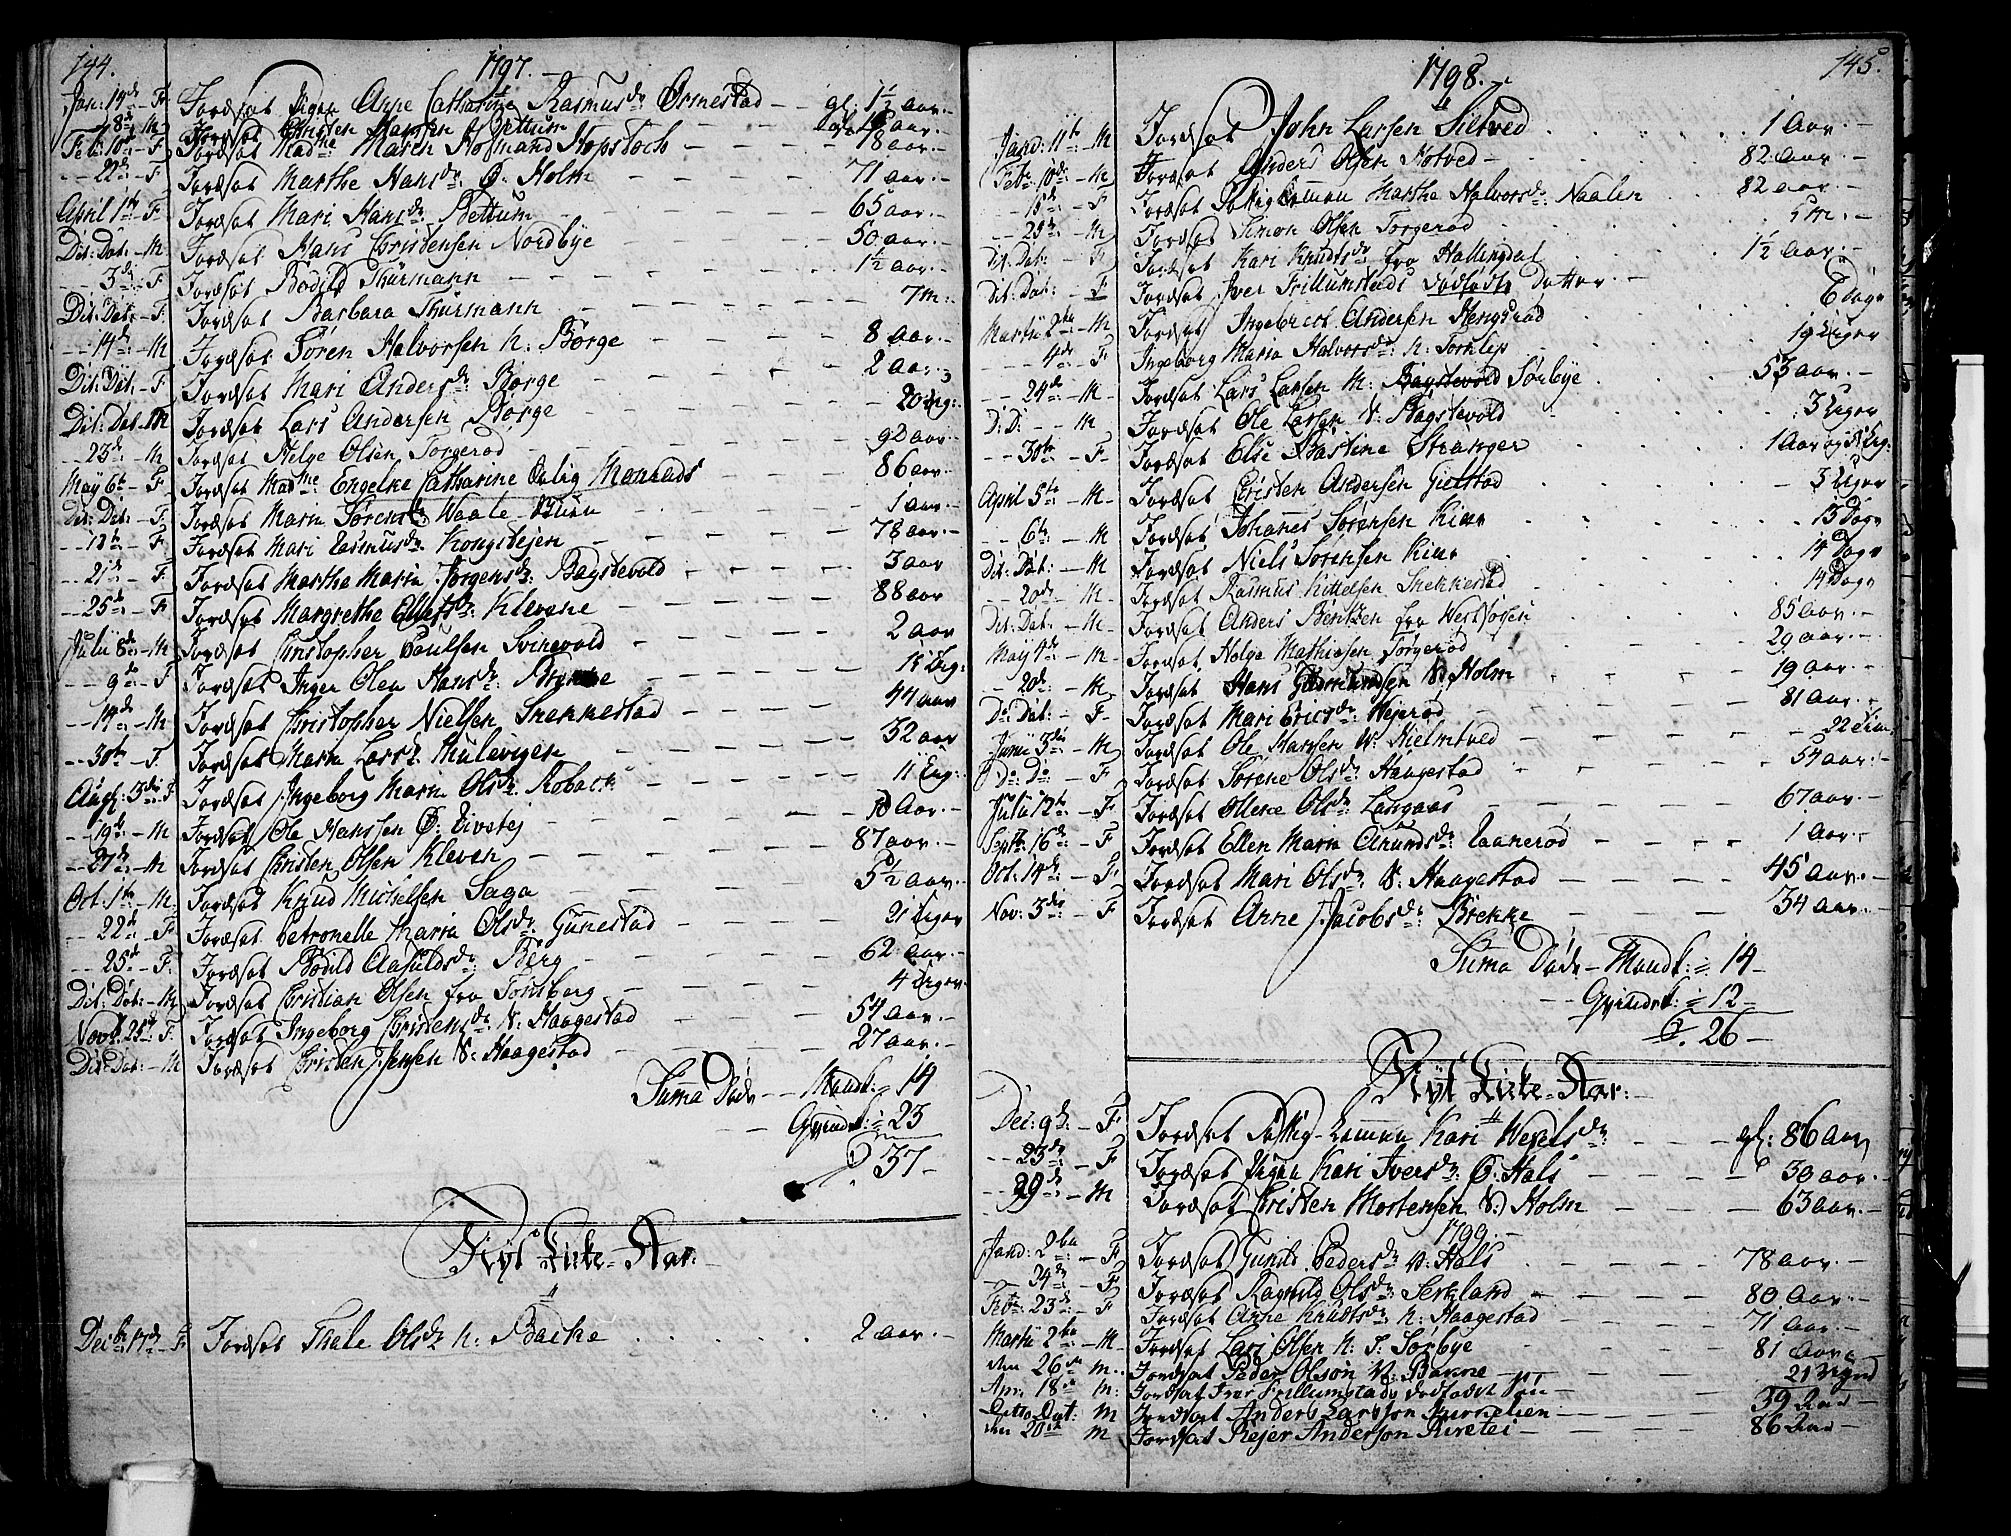 144.
1797.
Jan: 14de - F Jordsat Pigen Anne Catharine Rasmusdr Ørnestad - - gl: 1½ aar.
8de - M Jordsat Christen Hansen Bettum - - - aar.-
Feb: 10de - F Jordsat Madme Maren Hofmand Hopstoch - - - - 78 aar.-
- - 22de - F Jordsat Marthe Hansdr: Ø. Holm - - - - 71 aar.-
April 1te - F Jordsat Mari Hansdr: Bettum - - - - 65 aar.-
Dit: Dat: - M Jordsat Hans Christensen Nordbye - - - - 50 aar.-
- - 3de - F Jordsat Bodild Thurmann - - - - 1½ aar.-
Dit: Dat: - F Jordsat Barbara Thurmann - - - - 7 m:-
- - 14de - M Jordsat Sören Halvorsen N: Børge - - - - 8 aar.-
Dit: Dat: - F Jordsat Mari Andersdr: Børge - - - - 2 aar.
Dit: Dat: M Jordsat Lars Andersen Børge - - - - 20 Ug:
- - 23de - M Jordsat Helge Olsen Torgerød - - - - 92 aar.-
May 6te - F Jordsat Madme: Engelke Catharine Salig Monrads - - 86 aar.-
Dit: Dat: - F Jordsat Maria Sørensdr: Waale - - - - 1 aar.-
- - 13te - F Jordsat Mari Rasmusdr: Kongstejen - - - - 78 aar.-
- - 21de - F Jordsat Marthe Maria Jörgensdr: Bagstevold - - - - 3 aar
- - 25de - F Jordsat Margrethe Elertsdr: Klevene - - - - 88 aar
Julii 8de - M Jordsat Christopher Poulsen Svinevold - - - - 2 aar
- - 9de - F Jordsat Inger Olea Hansdr: - - - - 15 Ug:
- - 14de - M Jordsat Christopher Nielsen Snekkestad - - - - 44 aar
- - 30te - F. Jordsat Maria Larsdr: Mulevigen - - - - 32 aar
Aug: 3die F Jordsat Ingeborg Maria Olsdr: Roback - - - - 11 Ug:
- - 19de - M Jordsat Ole Hanssen Ø: Eivstej - - - - 10 Aar.-
- - 27de - M Jordsat Christen Olsen Kleven - - - - 87 aar.-
Oct: 1te - M: Jordsat Knud Michelsen Saga - - - - 5½ aar.-
- - 22de - F. Jordsat Petronelle Maria Olsdr: Gunestad - - - - 21 Uger
- - 25de - F. Jordsat Bodild Aasuldsdr: Berg - - - - 62 aar.-
Dit: Dat: - M Jordsat Christian Olsen fra Tönsberg - - - - 4 Uger.
Novb: 25de: F. Jordsat Ingeborg Christensdr: N: Haagestad - - - - 54 aar.-
Dit: Dat: - M Jordsat Christen Jensen N: Haagestad - - - - 27 aar.-
Suma Døde - - Mandk: = 14
- - Qvindek: = 23
S. 37 -
Nyt Kirke-Aar:
Decbr: 17de - F. Jordsat Thale Olsdr N: Backe . . . . . 2 aar.-
145.
1798.
Jand: 11te - M Jordsat John Larsen Siltved . . . 1 Aar.-
Febr: 10de - M Jordsat Anders Olsen Holved - . . . 82 aar.-
- - 15de - F Jordsat Fattig Lemm Marthe Halvorsdr: Naalen . . 82 aar.-
- - 25te - M Jordsat Simon Olsen Torgerød . . . 5 m:-
Dit: Dat: - F Jordsat Kari Knudsdr: fra Hallingdal . . 1½ aar.-
Dit: Dat: - F Jordsat Iver Trillumstads dødfødte Datter -
Martii 2den - M Jordsat Ingebrect Andersen Hengsrød . . . 6 Dage
- - - 4de - F Ingeborg Maria Halvorsdr: N: Torklep . . . 19 Uger
- - 24de - M Jordsat Lars Larsen M: Bagstevold Sörbye . . . 53 aar.-
D: D: - - M Jordsat Ole Larsen N. Bagstevold . . . 3 Uger
- - 30te - F Jordsat Else Bastine Stranger . . . 1 Aar og 5 Ug:
April 5te - M Jordsat Christen Andersen Gulstad . . . 3 Uger
- - 6te - M Jordsat Johannes Sørensen Kiær . . . 13 Dage
Dit: Dat: - M Jordsat Niels Sørensen Kiær . . . 14 Dage
- - 20de - M Jordsat Rasmus Kittelsen Snekkestad . . . 14 Dage
Dit: Dat: - M Jordsat Anders Bentzen fra Westfossen . . . 85 aar.-
May 4de - M Jordsat Helge Mathiesen Torgerød . . . 29 aar.-
- - 20de: - M Jordsat Hans Gudmundsen N: Holm . . . 19 aar.-
D: Dat: - F. Jordsat Mari Ericsdr: Wejerød . . . 81 aar.-
Junii 3die - M Jordsat Ole Hansen W: Hielmtved - - 22
D: D: - F Jordsat Sørene Olsdr: Haagestad . . . 54 aar.-
Julii 12te - F Jordsat Ollene Olsdr: Langaas - - - - 67 aar.-
Septb: 16de: - F Jordsat Ellen Maria Amundsdr: Taanerød . . . 1 aar.-
Oct: 14de: - F. Jordsat Mari Olsdr: N: Haagestad - - - - 45 aar.-
Nov: 3die - F Jordsat Anne Jacobsdr: Brekke - - - - 34 aar.-
Suma Døde - Mandk: = 14 -
Qvindek: = 12 -
S. 26 -
Nyt Kirke-Aar:-
Dec: 9de. - F Jordsat Fattig-Lemm Kari Wexelsdr: - - - gl: 86 aar
- - 23de - F Jordsat Pigen Kari Iversdr: Ø: Hals - - - 30 aar.-
- - 29de - M Jordsat Christen Mortensen N: Holm - - - 63 aar.-
1799.
Jand: 2den - F Jordsat Gunild Pedersdr: V: Hals - - - 78 aar.-
- - 24de - F Jordsat Ragnild Olsdr: Serkland - - - 80 aar.-
Feb: 23de: - F Jordsat Anne Knudtsdr: N: Haagestad - - - 71 aar.-
Martii 2den - M Jordsat Lars Olsen N: S: Sørbye - - - 81 aar
den 26de M. Jordsat Peder Olson V: Barne - - - 21 Uger
Apr: 18de M: Jordsat Iver Trillumstads dødfødt Sön -
Ditto Dat: M Jordsat Anders Larsson - - - 39 Aar
den 20de M Jordsat Rejer Anderson - - - 86 Aar